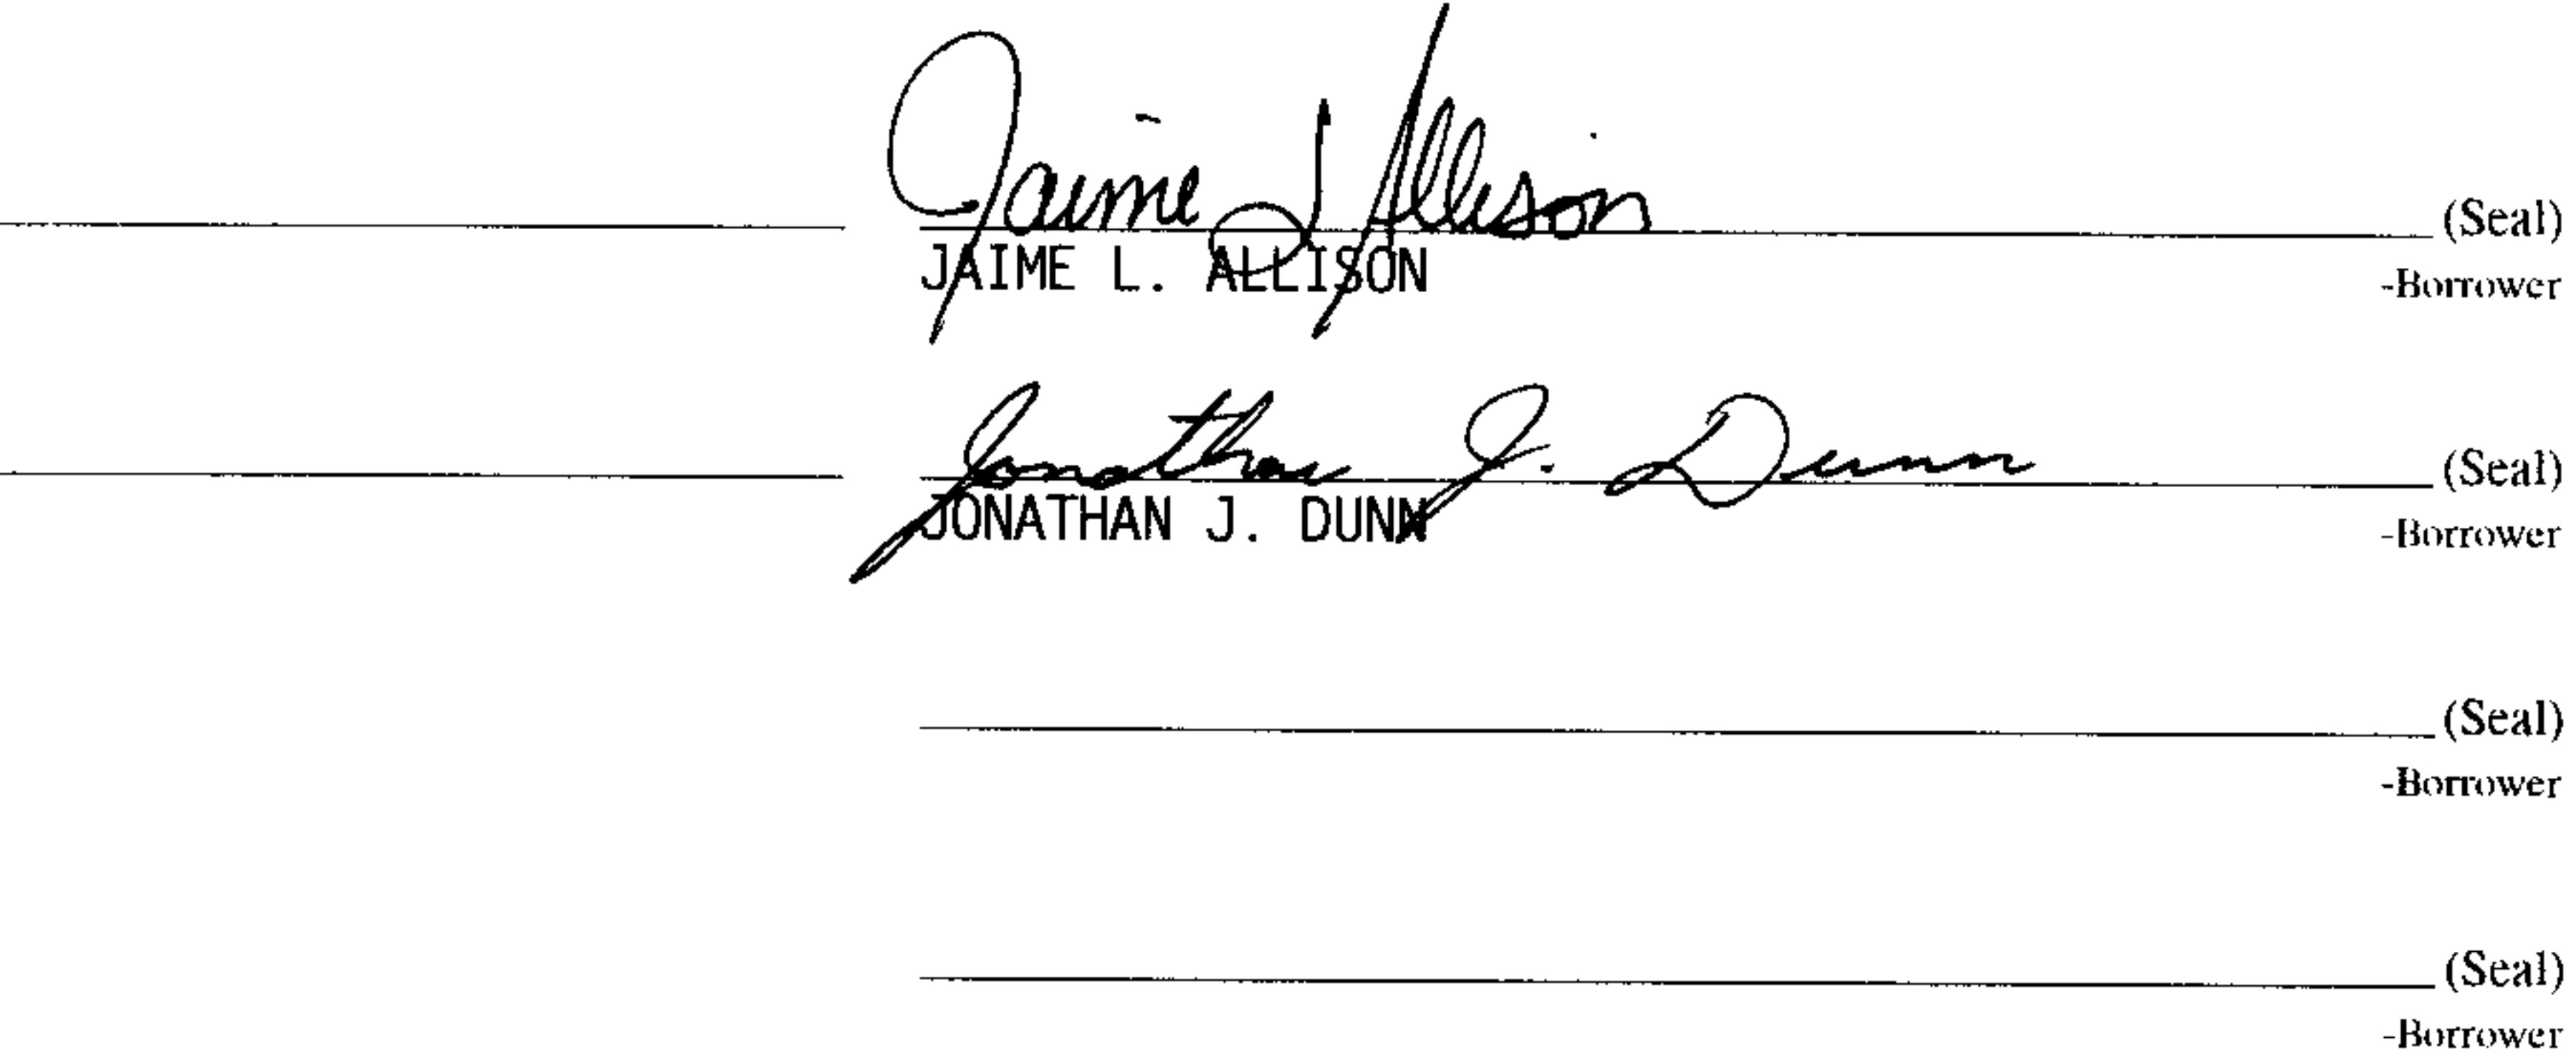 Jaime L Allison (Seal)
JAIME L. ALLISON -Borrower
Jonathan J. Dunn (Seal)
JONATHAN J. DUNN -Borrower
(Seal)
-Borrower
(Seal)
-Borrower